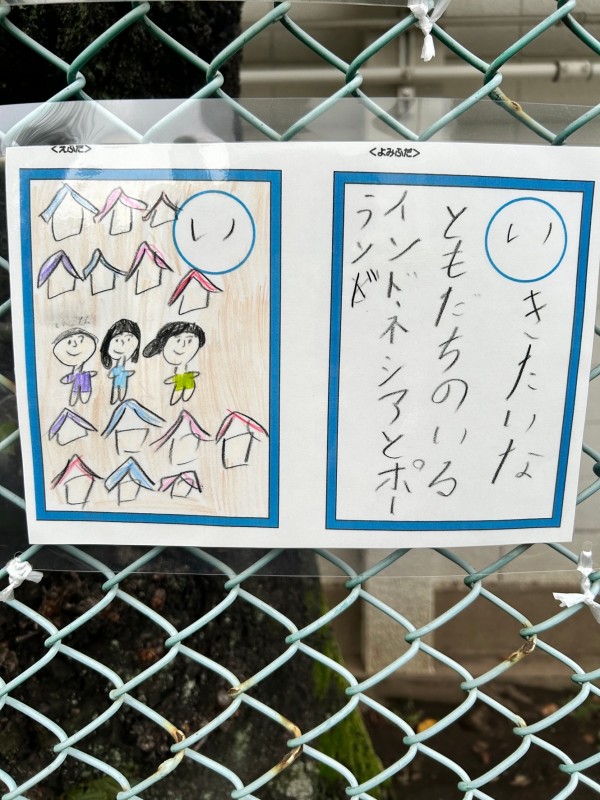 <えふだ>
<よみふだ>
い
い
きたいな
ともたちのいる
インドネシアとポー
ランド